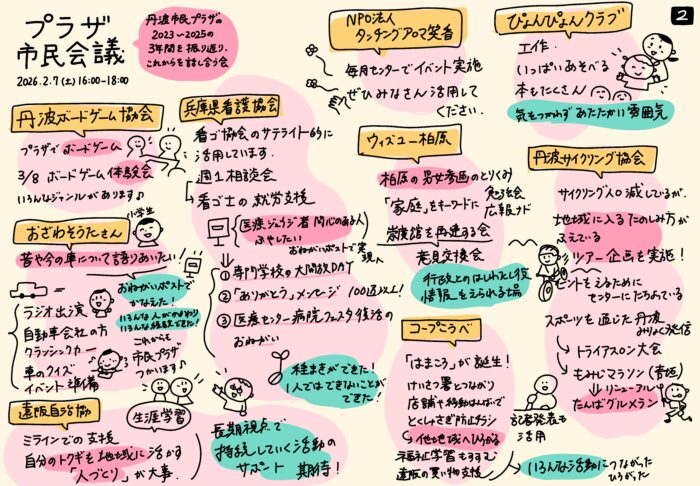 プラザ
市民会議
2026.2.7(土)16:00-18:00
丹波市民プラザの
2023〜2025の
3年間を振り返り、
これからを話し合う会
2
丹波ボードゲーム協会
プラザでボードゲーム
3/8 ボードゲーム体験会
いろんなジャンルがあります♪
おざわそうたさん
小学生
昔や今の車について語りあいたい
おねがいポストで
かなえた!
いろんな人がかかわり
いろんな経験できた!
ラジオ出演
自動車会社の方
クラシックカー
車のクイズ
イベント準備
これからも
市民プラザ
つかいます♪
遠阪自治協
生涯学習
ミラインでの支援
自分のトクギを地域に活かす
「人づくり」が大事.
兵庫県看護協会
看ゴ協会のサテライト的に
活用しています.
週1相談会
看ゴ士の就労支援
医療ジュウジ者 関心のある人
ふやしたい
おねがいポストで実現
①専門学校の大開放DAY
②「ありがとう」メッセージ 100通以上!
③医療センター病院フェスタ復活の
おねがい
種まきができた!
1人ではできないことが
できた!
長期視点で
持続していく活動の
サポート 期待!
NPO法人
タッチングアロマ笑香
毎月センターでイベント実施
ぜひみなさん活用して
ください.
ウィズユー柏原
柏原の男女参画のとりくみ
「家庭」をキーワードに
勉強会
広報ナド
意見交換会
行政とのはしわたし役
情報を支えられる場
コープこうべ
「はまころ」が誕生!
けいさつ署とつながり
店舗や移動はんばいで
とくしゅさぎ防止チラシ
他地域へひろがる
福祉学習もすすむ
遠阪の買い物支援
記者発表も
活用
いろんな活動につながった
ひろがった
ぴょんぴょんクラブ
工作.
いっぱいあそべる
本もたくさん
気をつかわず あたたかい雰囲気
丹波サイクリング協会
サイクリング人口減しているが、
地域に入るたのしみ方が
ふえている
ツアー企画を実施!
ヒントをえるために
センターにたちよっている
スポーツを通じた丹波
みりょく発信
トライアスロン大会
もみじマラソン(青垣)
リニューアル
たんばグルメラン!